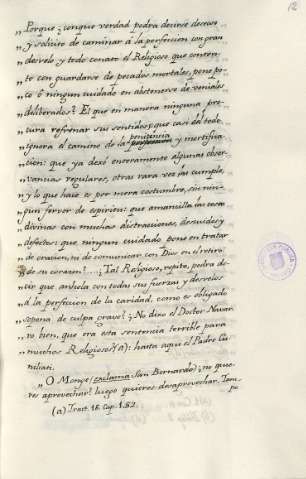 12
„Porque ¿conque verdad podra decirse deseoso
„y solicito de caminar á la perfeccion con gran
„desvelo y todo conato el Religioso que conten-
„to con guardarse de pecados mortales, pone po-
„co ó ningun cuidado en abstenerse de veniales
„deliberados? El que en manera ninguna pro-
„cura refrenar sus sentidos, que casi del todo
penitencia
„ignora el camino de la y mortifica-
„cion: que ya dexó enteramente algunas obser-
„vancias regulares, otras rara vez las cumple,
„y lo que hace es por mera costumbre, sin nin-
„gun fervor de espiritu: que amancilla las cosas
„divinas con muchas distracciones, descuidos y
„defectos que ningun cuidado pone en tratar
„de oracion, ni de comunicar con Dios en el retiro
„de su corazon? ... ¿Tal Religioso, repito, podra de-
„cir que anhela con todas sus fuerzas y desvelos
„á la perfeccion de la caridad, como es obligado
„sopena de culpa grave? ¿No dixo el Doctor Navar-
„ro bien, que era esta sentencia terrible para
„muchos Religiosos? (a): hasta aqui el Padre Cu-
„niliati.
„O Monge (exclama San Bernardo) ¿no quie-
„res aprovechar? luego quieres desaprovechar. Tam-
(a) Tract. 15. Cap. 1. §2.